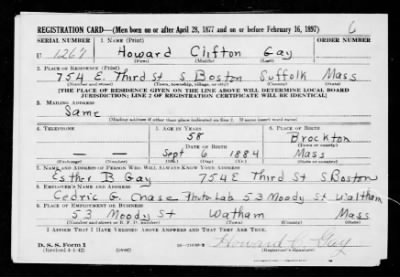 REGISTRATION CARD—(Men born on or after April 28, 1877 and on or before February 16, 1897) 6
SERIAL NUMBER 1. NAME (Print) ORDER NUMBER
U 1267 Howard Clifton Gay
(First) (Middle) (Last)
2. PLACE OF RESIDENCE (Print)
754 E. Third St S Boston Suffolk Mass
(Number and street) (Town, township, village, or city) (County) (State)
[THE PLACE OF RESIDENCE GIVEN ON THE LINE ABOVE WILL DETERMINE LOCAL BOARD
JURISDICTION; LINE 2 OF REGISTRATION CERTIFICATE WILL BE IDENTICAL]
3. MAILING ADDRESS
Same
[Mailing address if other than place indicated on line 2. If same insert word same]
4. TELEPHONE 5. AGE IN YEARS 6. PLACE OF BIRTH
58 Brockton
DATE OF BIRTH (Town or county)
— — Sept 6 1884 Mass
(Exchange) (Number) (Mo.) (Day) (Yr.) (State or country)
7. NAME AND ADDRESS OF PERSON WHO WILL ALWAYS KNOW YOUR ADDRESS
Esther B Gay 754 E Third St S Boston
8. EMPLOYER'S NAME AND ADDRESS
Cedric G. Chase Photo Lab 53 Moody St Waltham
9. PLACE OF EMPLOYMENT OR BUSINESS
53 Moody St Watham Mass
(Number and street or R. F. D. number) (Town) (County) (State)
I AFFIRM THAT I HAVE VERIFIED ABOVE ANSWERS AND THAT THEY ARE TRUE.
D. S. S. Form 1
(Revised 4-1-42) (over) Howard C. Gay